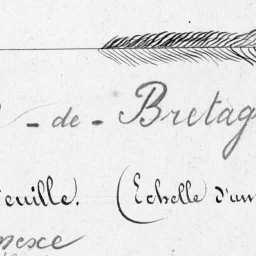 - de - Bretag
euille. (Echelle d'un
nexe